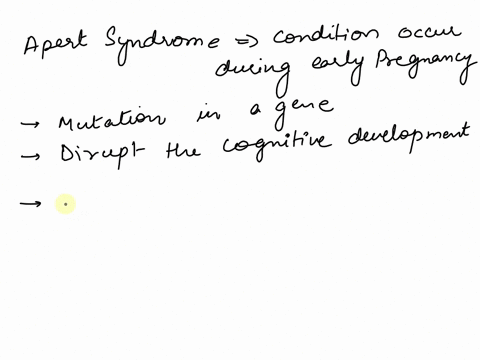 Apert Syndrome => Condition occur
during early Pregnancy
→ Mutation in a gene
→ Disrupt the cognitive development
→